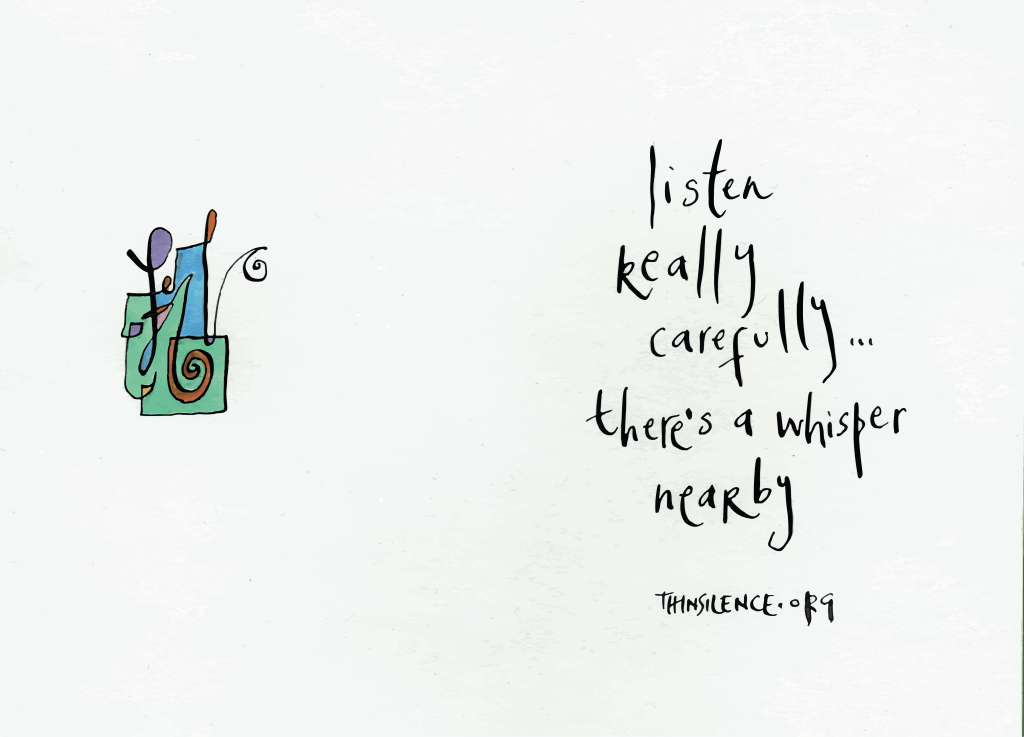 listen
really
carefully...
there's a whisper
nearby
THINSILENCE.ORG